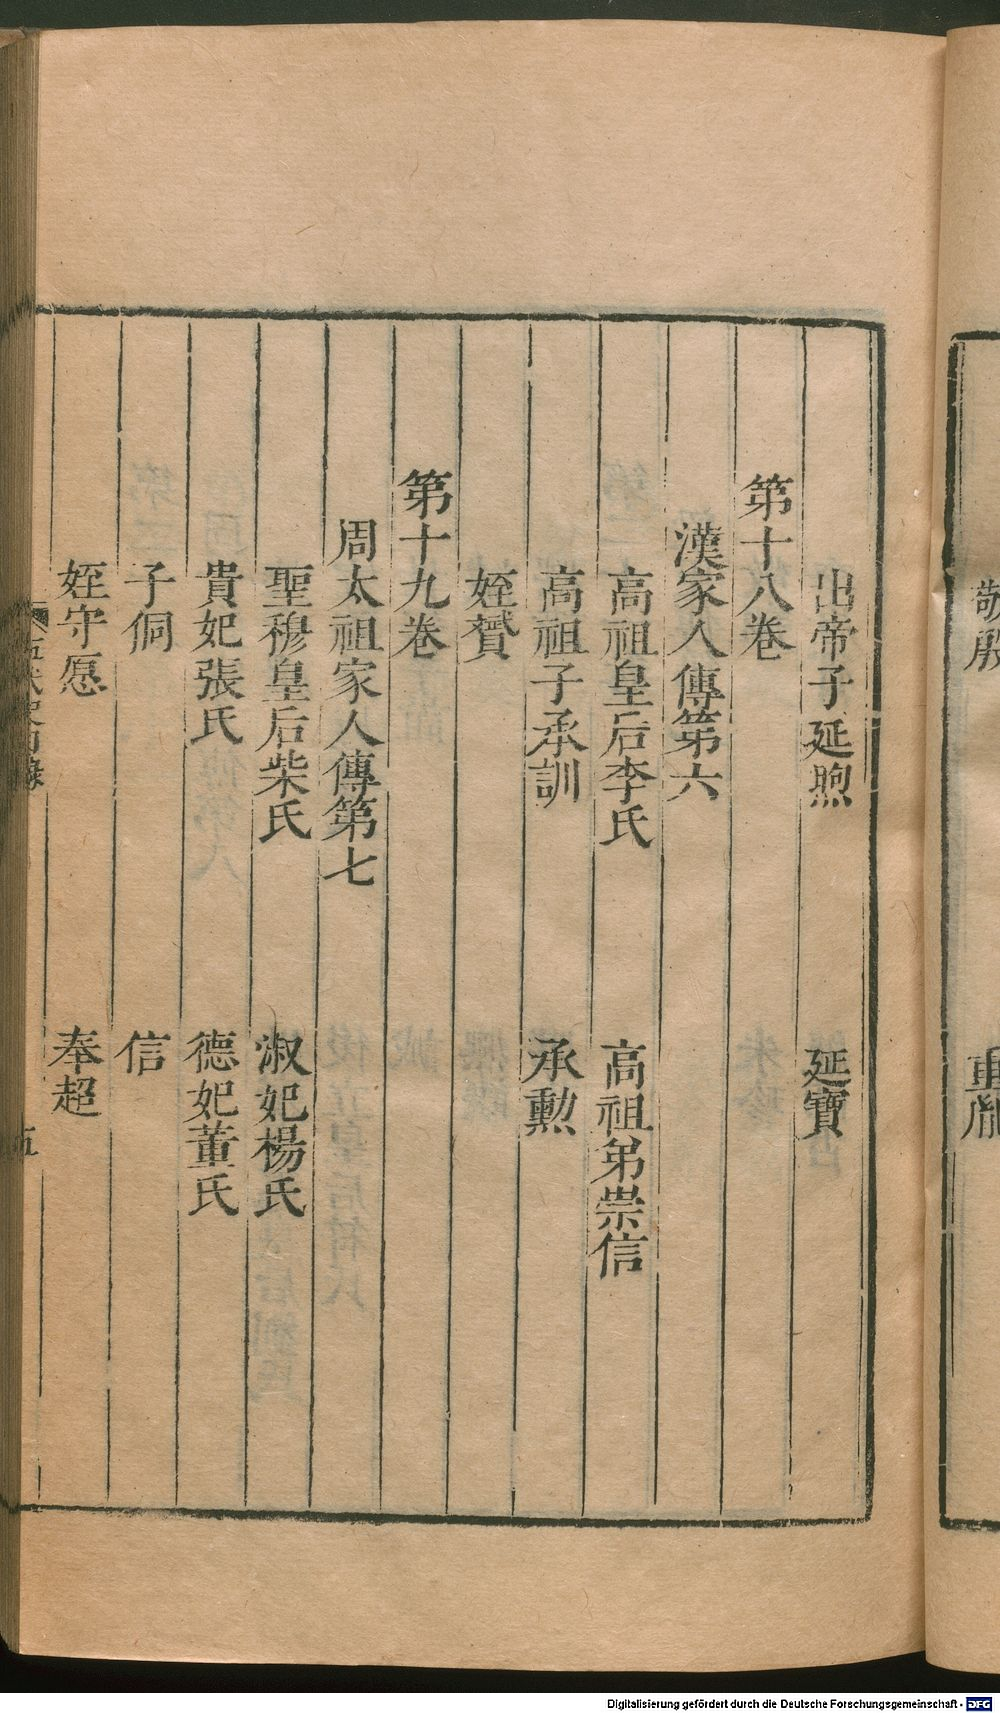 出帝子延煦 延寶
第十八卷
漢家人傳第六
高祖皇后李氏 高祖弟崇信
高祖子承訓 承勲
姪贇
第十九卷
周太祖家人傳第七
聖穆皇后柴氏 淑妃楊氏
貴妃張氏 德妃董氏
子侗 信
姪守愿 奉超
五
Digitalisierung gefördert durch die Deutsche Forschungsgemeinschaft - DFG